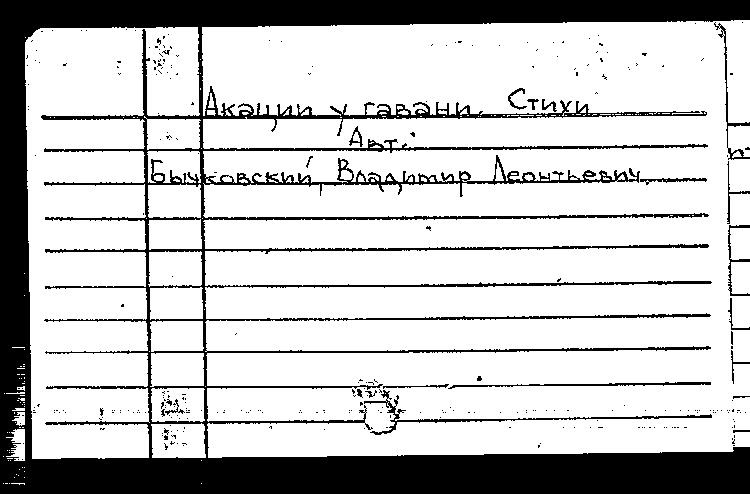 Акации у гавани. Стихи
Авт.:
Бычковский, Владимир Леонтьевич.